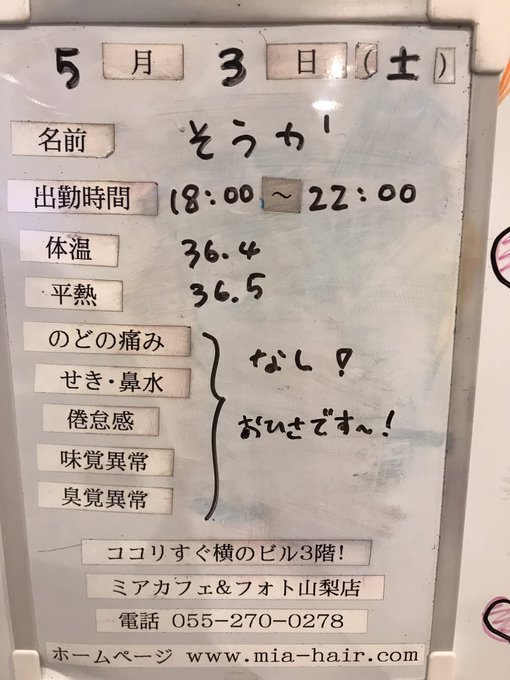 5月3日(土)
名前 そうか
出勤時間 18:00～22:00
体温 36.4
平熱 36.5
のどの痛み
せき・鼻水
倦怠感
味覚異常
臭覚異常
なし!
おひさです～!
ココリすぐ横のビル3階!
ミアカフェ&フォト山梨店
電話 055-270-0278
ホームページ www.mia-hair.com